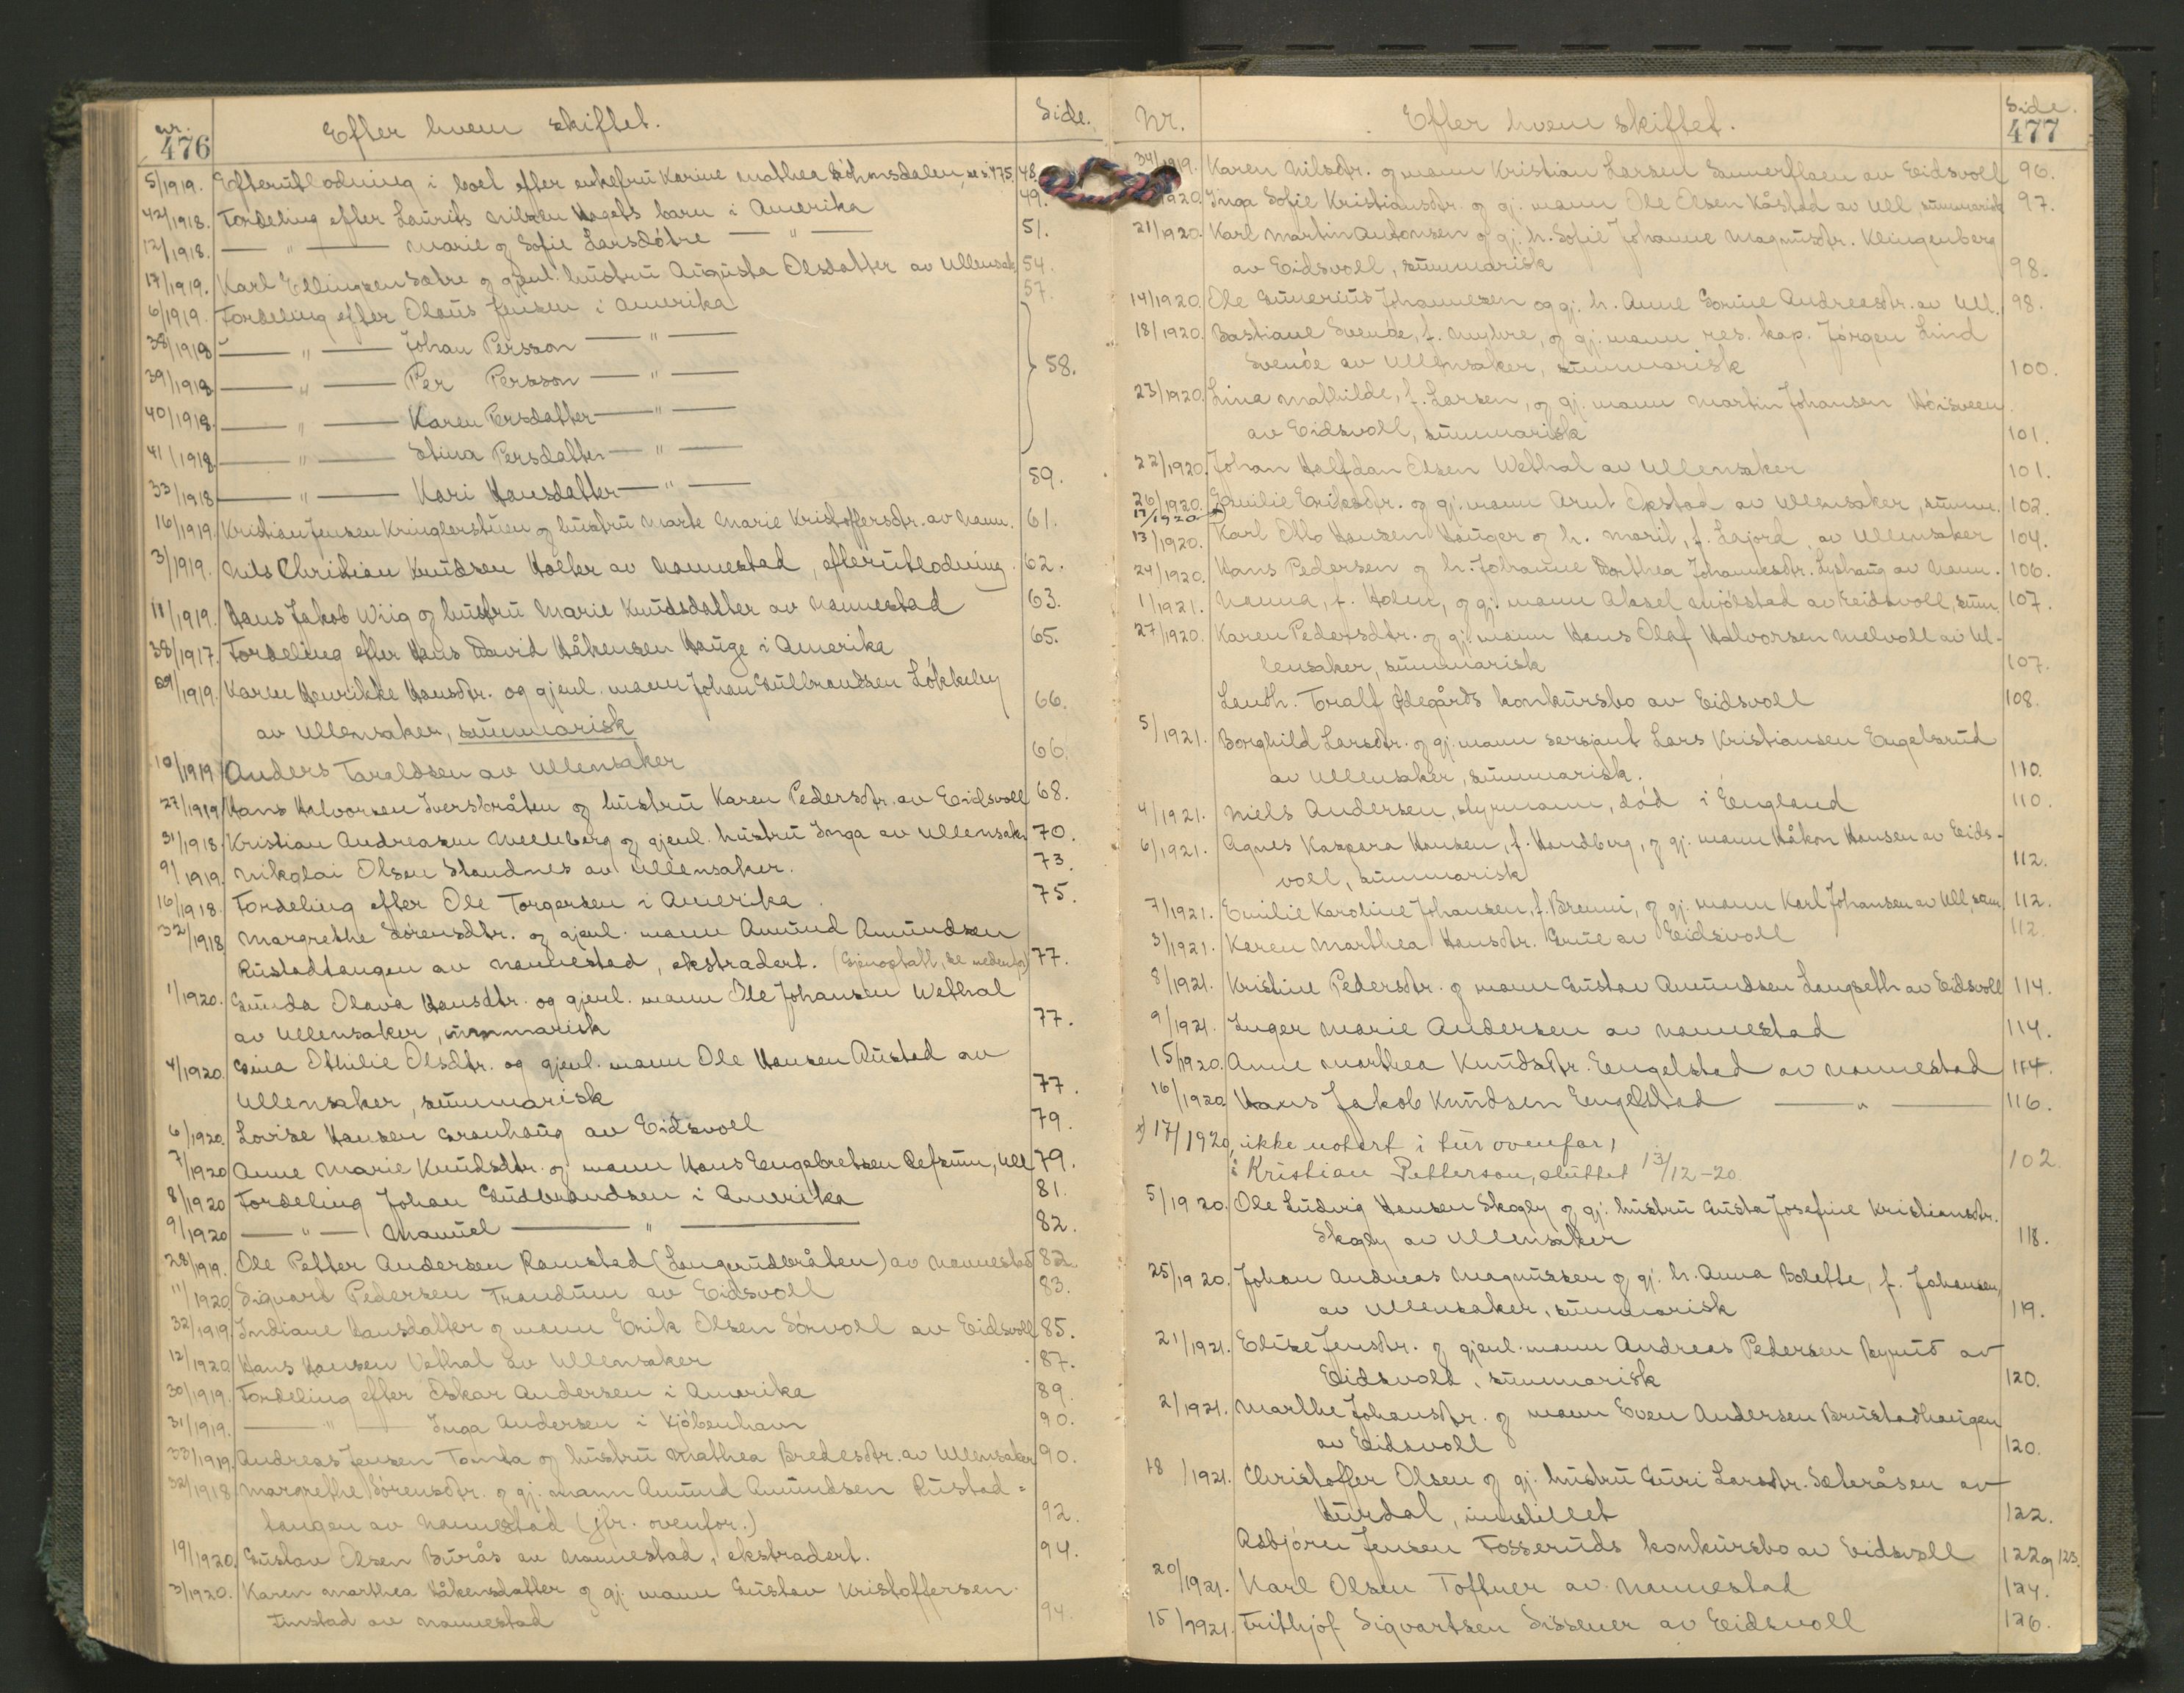 nr. Efter hvem skiftet. Side.
476
5/1919. Efterutlodning i boet efter enkefru Karine Mathea, se s. 475, 48.
42/1918. Fordeling efter Laurits Nilsen Hagets barn i Amerika 49.
12/1918. — " — Marie og Sofie Larsdøtre — " — 51.
17/1919. Karl Ellingsen Sætre og gjenl. hustru Augusta Olsdatter av Ullensak. 54.
6/1919. Fordeling efter Olaus Jensen i Amerika 57.
38/1918 — " — Johan Persson — " —
39/1918 — " — Per Persson — " — 58.
40/1918. — " — Karen Persdatter — " —
41/1918. — " — Stina Persdatter — " —
33/1918 — " — Kari Hansdatter — " — 59.
16/1919. Kristian Jensen Kringlerstuen og hustru Marte Marie Kristoffersdtr. av Nann. 61.
3/1919. Nils Christian Knudsen Holter av Nannestad, efterutlodning. 62.
11/1919. Hans Jakob Wiig og hustru Marie Knudsdatter av Nannestad 63.
38/1917. Fordeling efter Hans David Håkensen Hauge i Amerika 65.
29/1919. Karen Henrikke Hansdtr. og gjenl. mann Johan Gulbrandsen Løkkeby
av Ullensaker, summarisk 66.
10/1919 Anders Taraldsen av Ullensaker 66.
27/1919 Hans Halvorsen Iversbråten og hustru Karen Pedersdtr. av Eidsvoll 68.
31/1918. Kristian Andreassen Melleberg og gjenl. hustru Inga av Ullensaker 70.
9/1919. Nikolai Olsen Slaudnes av Ullensaker. 73.
16/1918. Fordeling efter Ole Torgersen i Amerika 75.
32/1918 Margrethe Sørensdtr. og gjenl. mann Amund Amundsen
Rustadtangen av Nannestad, ekstradert. (Gjenoptatt, se nedenfor) 77.
1/1920. Gunda Olava Hansdtr. og gjenl. mann Ole Johansen Wethal
av Ullensaker, summarisk 77.
4/1920. Gina Othilie Olsdtr. og gjenl. mann Ole Hansen Rustad av
Ullensaker, summarisk 77.
6/1920. Lovise Hansen Granhaug av Eidsvoll 79.
7/1920 Anne Marie Knudsdtr. og mann Hans Engebretsen Refsum, Ull. 79.
8/1920 Fordeling Johan Gudbrandsen i Amerika 81.
9/1920 — " — Manuel — " — 82.
28/1919. Ole Petter Andersen Ramstad (Langerudbråten) av Nannestad 82.
11/1920 Sigvard Pedersen Trandum av Eidsvoll 83.
32/1919 Indiane Hansdatter og mann Erik Olsen Sörvoll av Eidsvoll 85.
12/1920 Hans Hansen Vethal av Ullensaker 87.
30/1919. Fordeling efter Oskar Andersen i Amerika 89.
31/1919. — " — Inga Andersen i Kjøbenhavn 90.
33/1919. Andreas Jensen Tomta og hustru Mathea Bredesdtr. av Ullensaker 90.
32/1918 Margrethe Sørensdtr. og gj. mann Amund Amundsen Rustad=
tangen av Nannestad (jfr. ovenfor.) 92.
19/1920. Gustav Olsen Burås av Nannestad, ekstradert. 94.
3/1920. Karen Marthea Håkensdatter og gj. mann Gustav Kristoffersen
Finstad av Nannestad 94.
Nr. Efter hvem skiftet. Side.
477
34/1919. Karen Nilsdtr. og mann Kristian Larsen av Eidsvoll 96.
1920. Inga Sofie Kristiansdtr. og gj. mann Ole Olsen Kåstad av Ull. summarisk 97.
21/1920. Karl Martin Antonsen og gj. h. Sofie Johanne Magnusdtr. Klingenberg
av Eidsvoll, summarisk 98.
14/1920. Ole Gunerius Johannesen og gj. h. Anne Gorine Andreasdtr. av Ull. 98.
18/1920. Bastiane Svenøe, f. Myhre, og gj. mann res. kap. Jørgen Lind
Svenøe av Ullensaker, summarisk 100.
23/1920. Lina Mathilde, f. Larsen, og gj. mann Martin Johansen Høisveen
av Eidsvoll, summarisk 101.
22/1920. Johan Halfdan Olsen Wethal av Ullensaker 101.
26/1920. Emilie Eriksdtr. og gj. mann Arnt Opstad av Ullensaker, summ. 102.
17/1920
13/1920. Karl Otto Hansen Hauger og h. Marit, f. Lajord, av Ullensaker 104.
24/1920. Hans Pedersen og h. Johanne Dorthea Johannesdtr. Lyshaug av Nann. 106.
1/1921. Nanna, f. Holm, og gj. mann Aksel Mjølstad av Eidsvoll, sum. 107.
27/1920. Karen Pedersdtr. og gj. mann Hans Olaf Halvorsen Melvoll av Ul-
lensaker, summarisk 107.
Landh. Toralf Ødegårds konkursbo av Eidsvoll 108.
5/1921. Borghild Larsdtr. og gj. mann sersjant Lars Kristiansen Engelsrud
av Ullensaker, summarisk. 110.
4/1921. Niels Andersen, styrmann, død i England 110.
6/1921. Agnes Kaspara Hansen, f. Handberg, og gj. mann Håkon Hansen av Eids-
voll, summarisk 112.
7/1921. Emilie Karoline Johansen, f. Brenni, og gj. mann Karl Johansen av Ull. sum. 112.
3/1921. Karen Marthea Hansdtr. Grue av Eidsvoll 112.
8/1921. Kristine Pedersdtr. og mann Gustav Amundsen Langseth av Eidsvoll 114.
9/1921. Inger Marie Andersen av Nannestad 114.
15/1920. Anne Marthea Knudsdtr. Engelstad av Nannestad 114.
16/1920 Hans Jakob Knudsen Engelstad — " — 116.
x) 17/1920, ikke notert i tur ovenfor,
i Kristian Petterson, sluttet 13/12-20 102.
5/1920. Ole Ludvig Hansen Skogly og gj. hustru Gusta Josefine Kristiansdtr.
Skogly av Ullensaker 118.
25/1920. Johan Andreas Magnussen og gj. h. Anna Bolette, f. Johansen,
av Ullensaker, summarisk 119.
21/1921. Elise Jensdtr. og gjenl. mann Andreas Pedersen Byrud av
Eidsvold, summarisk 120.
2/1921. Marthe Johansdtr. og mann Even Andersen Brustadhaugen
av Eidsvoll 120.
18/1921. Christoffer Olsen og gj. hustru Guri Larsdtr. Sæteråsen av
Hurdal, innstillet 122.
Asbjørn Jensen Fosseruds konkursbo av Eidsvoll 122 og 123.
20/1921. Karl Olsen Toftner av Nannestad 124.
15/1921. Frithjof Sigvartsen Sissener av Eidsvoll 126.